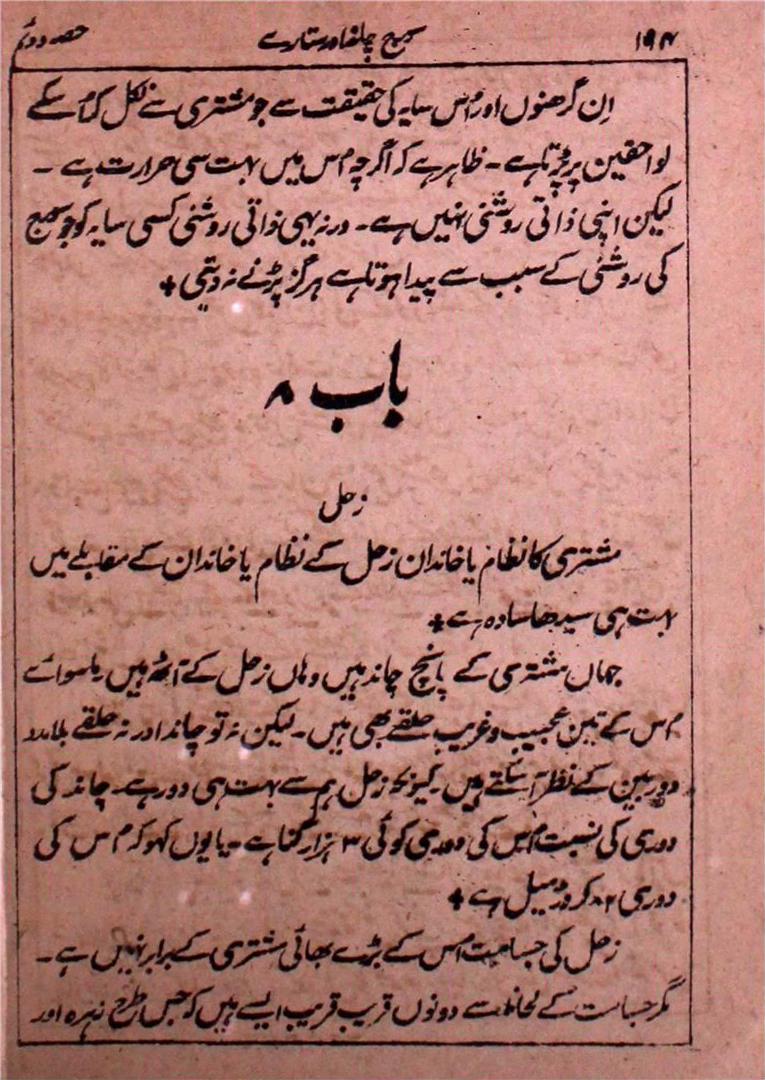 ۱۹۴ سمیع چاند اور ستارے حصہ دوئم
اِن گرھنوں اور اُس سایہ کی حقیقت سے جو مشتری سے نکل کر اُسکے
لواحقین پر پڑتا ہے ۔ ظاہر ہے کہ اگرچہ اُس میں بہت سی حرارت ہے ۔
لیکن اپنی ذاتی روشنی نہیں ہے ۔ ورنہ یہی ذاتی روشنی کسی سایہ کو جو
کی روشنی کے سبب سے پیدا ہوتا ہے ہرگز پڑنے نہ دیتی +
باب ۸
زحل
مشتری کا نظام یا خاندان زحل کے نظام یا خاندان کے مقابلے میں
بہت ہی سیدھا سادہ ہے +
جہاں مشتری کے پانچ چاند ہیں وہاں زحل کے آٹھ ہیں ماسوائے
اُس کے تین عجیب و غریب حلقے بھی ہیں ۔ لیکن نہ تو چاند اور نہ حلقے بلامدد
دوربین کے نظر آسکتے ہیں ۔ کیونکہ زحل ہم سے بہت ہی دور ہے ۔ چاند کی
دوری کی نسبت اُس کی دوری کوئی ۳ ہزار گنا ہے ۔ یا یوں کہو کہ اُس کی
دوری ۸۲ کروڑ میل ہے +
زحل کی جسامت اُس کے بڑے بھائی مشتری کے برابر نہیں ہے ۔
مگر جسامت کے لحاظ سے دونوں قریب قریب ایسے ہیں کہ جس طرح زہرہ اور